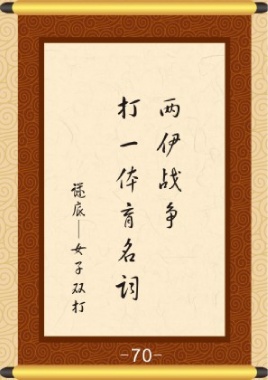 两伊战争
打一体育名词
谜底——女子双打
-70-